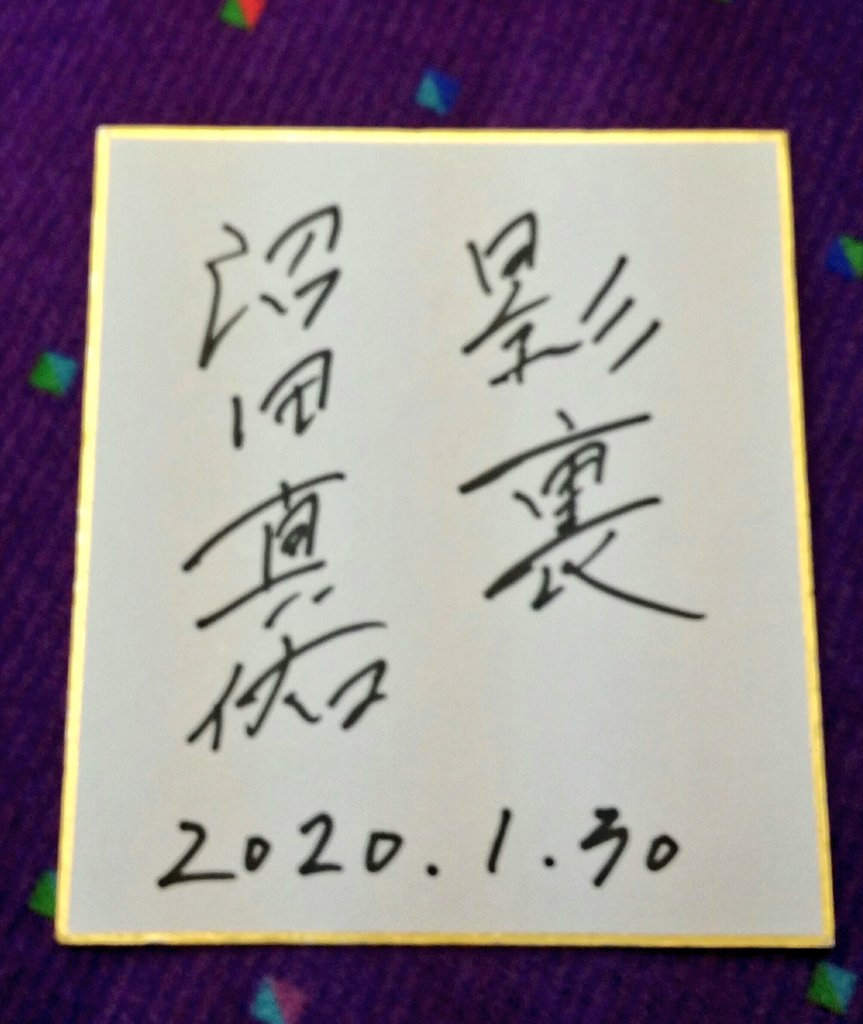 影裏
沼田真佑
2020.1.30